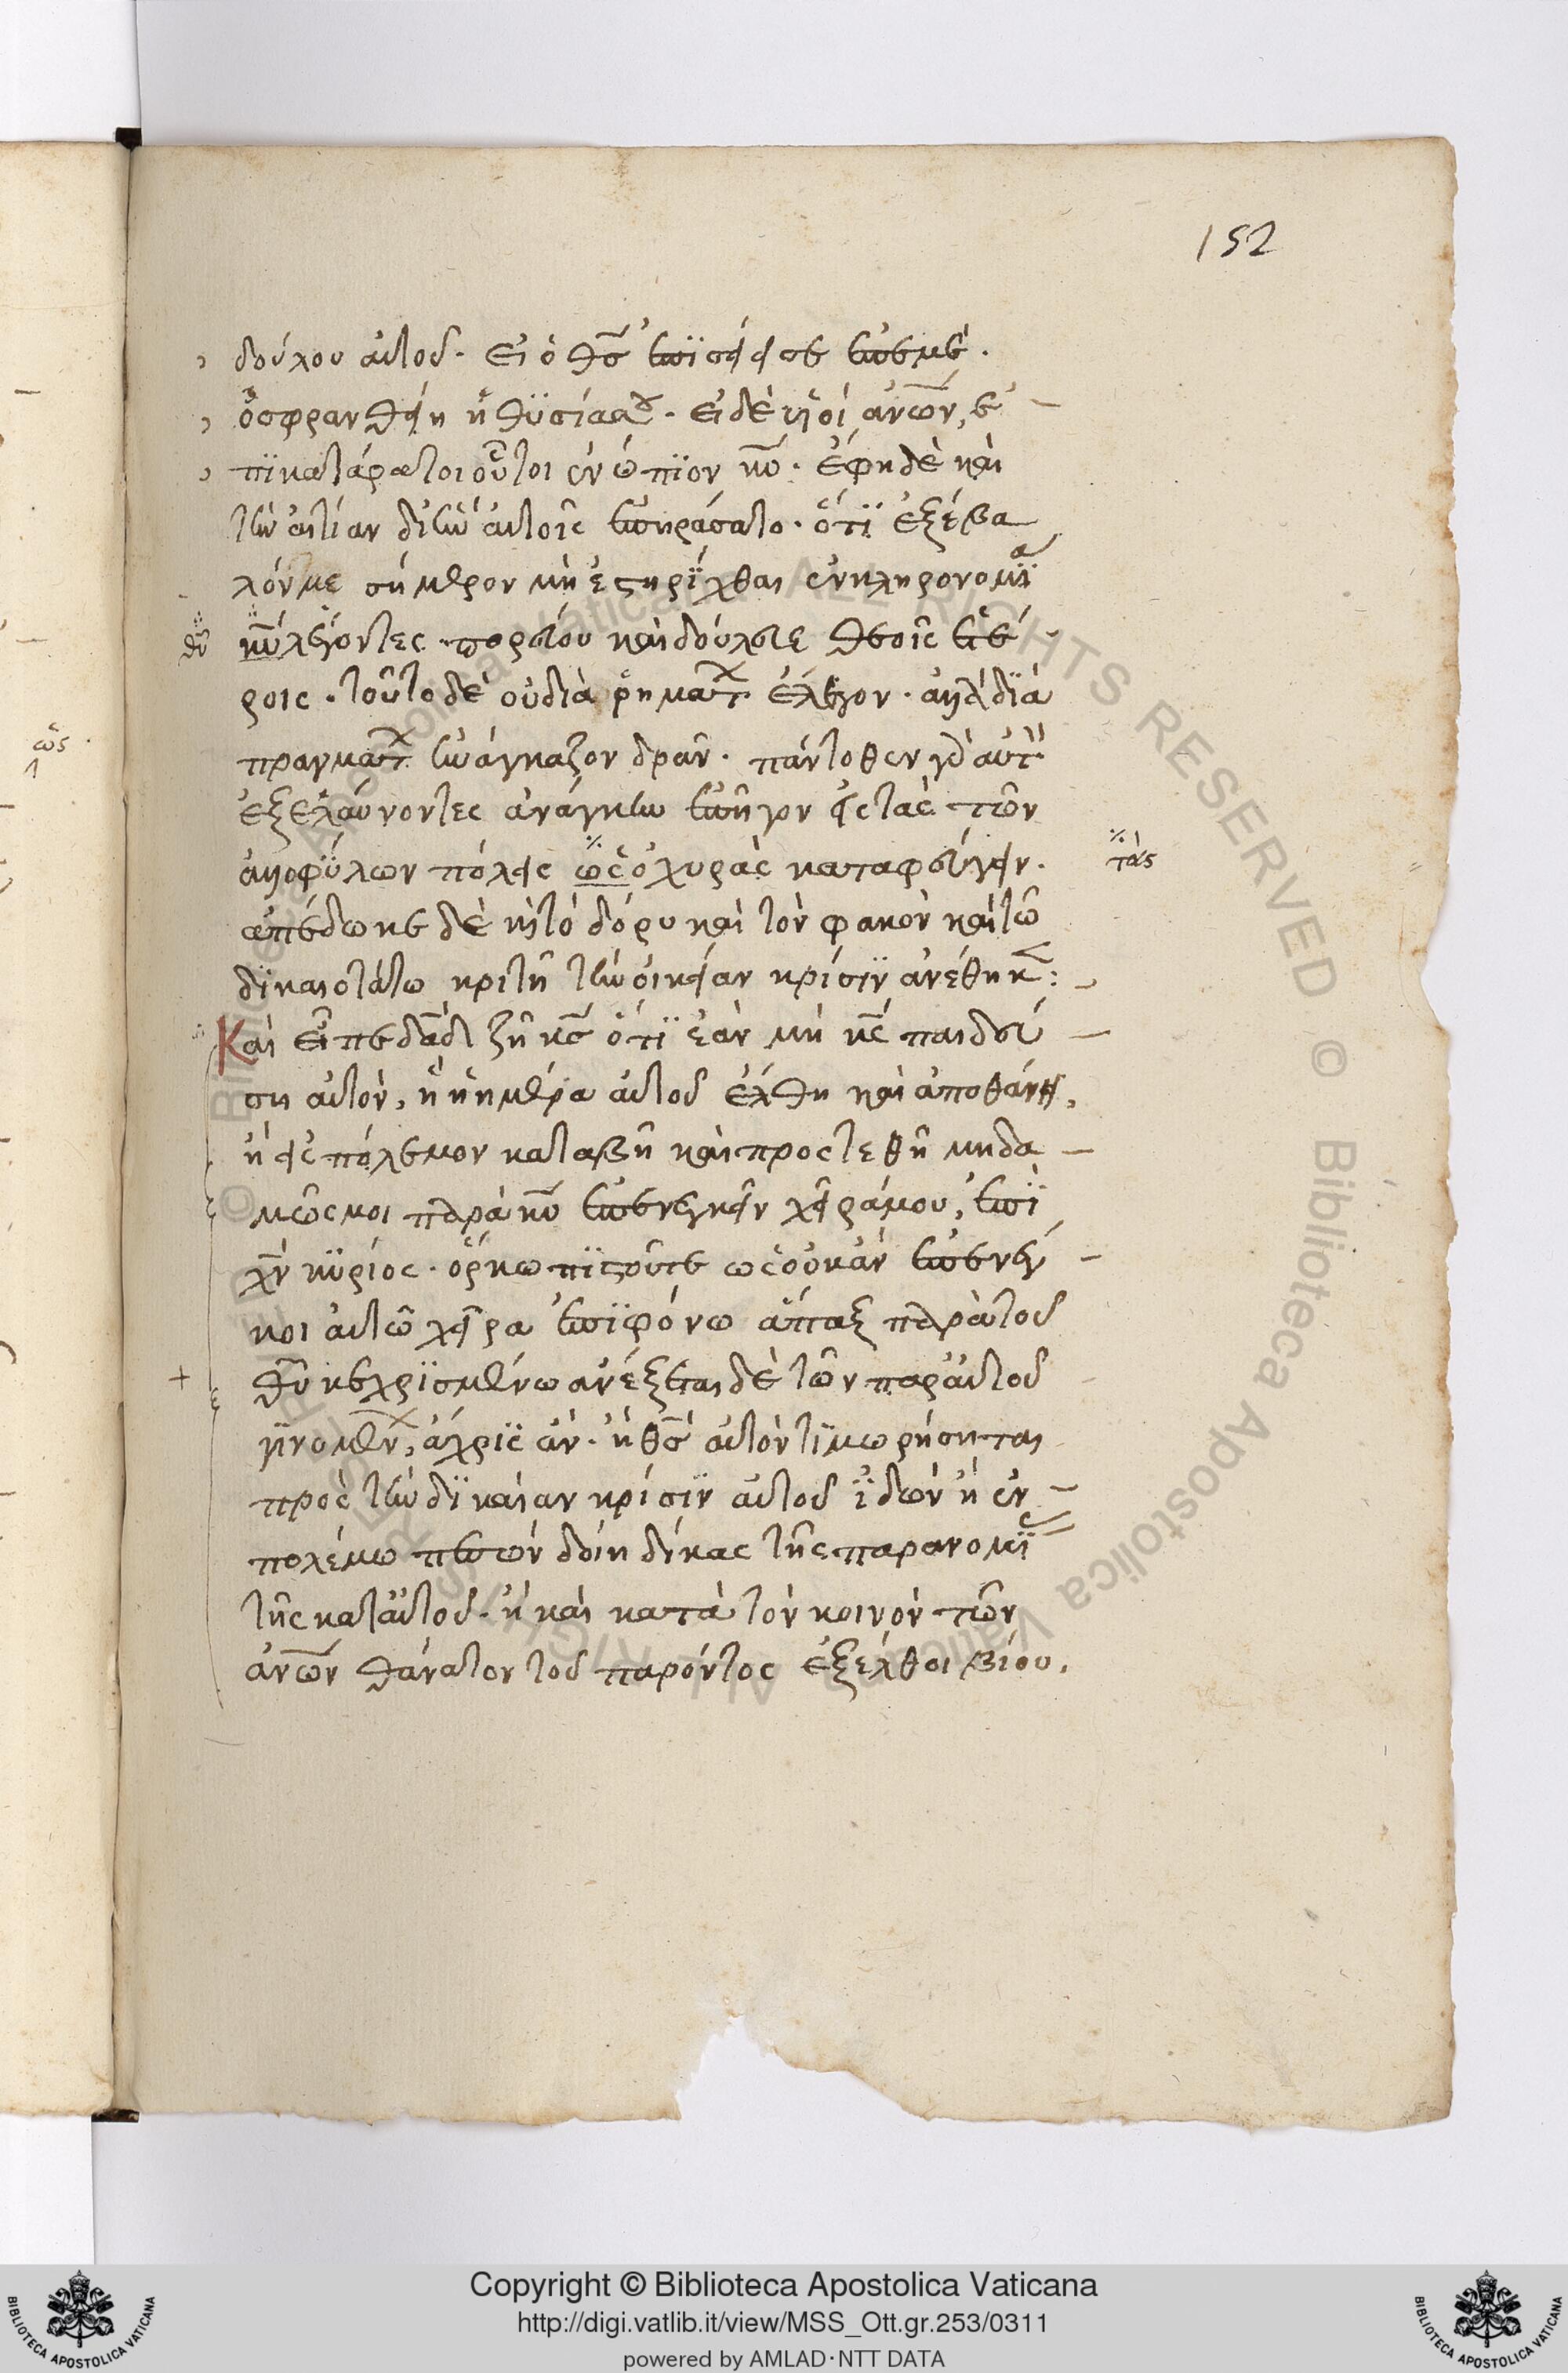 152
δούλου αὐτοῦ. εἰ ὁ θς̅ ἐπϊσείει σε ἐπ' ἐμέ.
ὀσφρανθείη ἡ θϋσίασ. εἰ δὲ υἱοὶ ἀνω̅ν, ἐ
πϊκατάρατοι οὗτοι ἐνώπϊον κυ̅. ἔφη δὲ καὶ
τὴν αἰτίαν δι' ἣν αὐτοῖς ἐπηράσατο. ὅτϊ ἐξέβα
λόν με σήμερον μὴ ἐστηρίχθαι ἐν κληρονομΐα
θυ̅ κυ̅ λέγοντες. πορεύου καὶ δούλευε θεοῖς ἑτέ
ροις. τοῦτο δὲ οὐ διὰ ῥημάτ ἔλεγον. ἀλλὰ δϊὰ
πραγμάτ ἠνάγκαζον δρᾶν. πάντοθεν γὰρ αὐτὸν
ἐξελαύνοντες ἀνάγκην ἐπῆγον εἰς τὰς τῶν
ἀλλοφύλων πόλεις ὡς ὀχυρὰς καταφεύγειν.
τὰς
ἀπέδωκε δὲ κὶ τὸ δόρυ καὶ τὸν φακὸν καὶ τῶ
δϊκαιοτάτω κριτῆ τὴν οἰκείαν κρίσϊν ἀνέθηκε:
Καὶ εἶπε δαδ̅ ζῆ κς̅ ὅτϊ ἐὰν μὴ κς̅ παιδεύ
ση αὐτὸν, ἢ ἡ ἡμέρα αὐτοῦ ἔλθη καὶ ἀποθάνη,
ἢ εἰς πόλεμον καταβῆ καὶ προστεθῆ μηδα
μῶς μοι παρὰ κυ̅ ἐπενεγκεῖν χεῖρά μου, ἐπὶ
χν̅ κϋρίος. ὅρκω πϊστοῦται ὡς οὐκ ἂν ἐπενέγ
κοι αὐτῶ χεῖρα ἐπϊ φόνω ἅπαξ παρὰ τοῦ
θυ̅ κεχρϊσμένω ἀνέξεται δὲ τῶν παρ' αὐτοῦ
γϊνομέν, ἄχρϊς ἂν. ἢ θς̅ αὐτὸν τϊμωρήσηται
πρὸς τὴν δϊκαίαν κρίσϊν αὐτοῦ ἰδὼν ἢ ἐν
πολέμω πεσὼν δοίη δίκας τῆς παρανομΐας
τῆς κατ' αὐτοῦ. ἢ καὶ κατὰ τὸν κοινὸν τῶν
ἀνω̅ν θάνατον τοῦ παρόντος ἐξέλθοι βίου.
ὡς
Copyright © Biblioteca Apostolica Vaticana
http://digi.vatlib.it/view/MSS_Ott.gr.253/0311
powered by AMLAD·NTT DATA